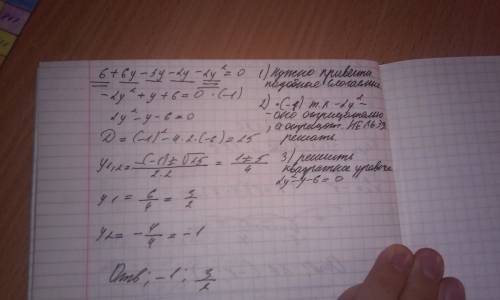 6 + 6y - 3y - 2y - 2y² = 0
-2y² + y + 6 = 0 ·(-1)
2y² - y - 6 = 0
D = (-1)² - 4·2·(-6) = 25
y1,2 = -(-1) ± √25 / 2·2 = 1 ± 5 / 4
y1 = 6/4 = 3/2
y2 = -4/4 = -1
Отв; -1; 3/2
1) Нужно привести
подобные слогаемые
2) ·(-1) т.к -2y² -
- оно отрицательно
, а отрицат. НЕЛЬЗЯ
решать
3) решить
квадратное
2y² - y - 6 = 0